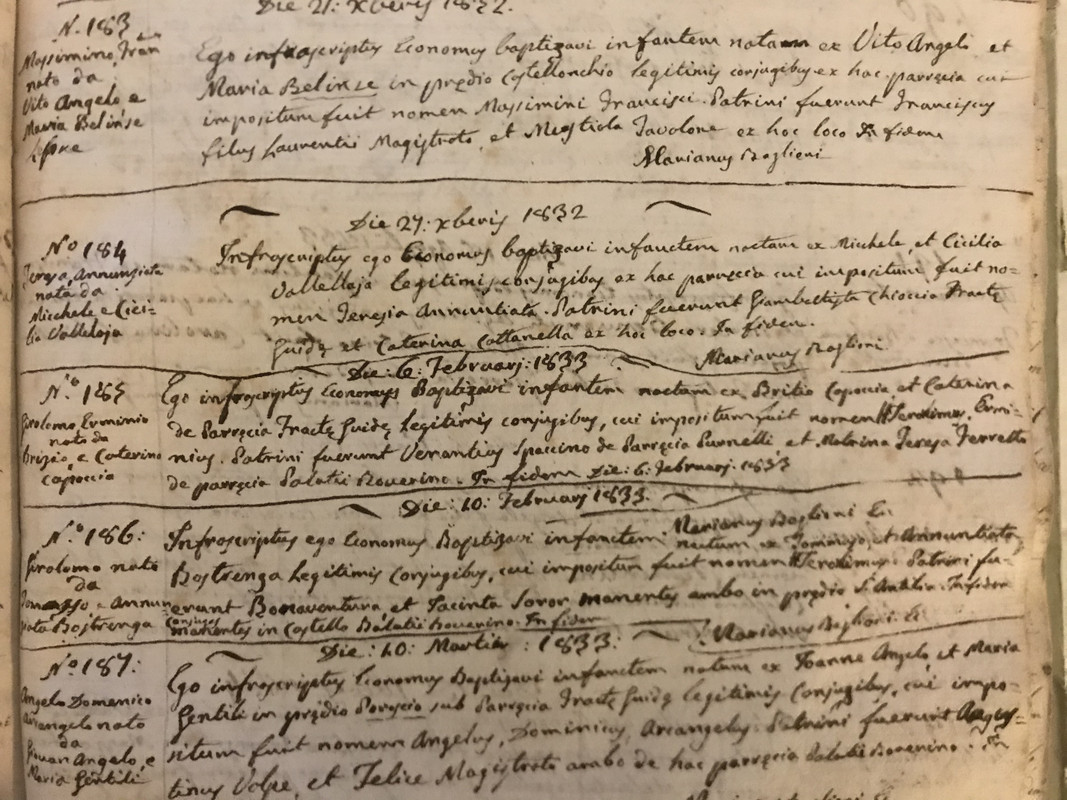 Die 21: xberis 1832.
N. 183
Massimino, Fran
nato da
Vito Angelo e
Maria Belinse
Ego infrascriptus Economus baptizavi infantem natum ex Vito Angelo et
Maria Belinze in prędio Castellonchio legitimis conjugibus ex hac parręcia cui
impositum fuit nomen Massimini Francisci. Patrini fuerunt Franciscus
filius Laurentii Magistrato, et Favolone ex hoc loco In fidem
Marianus Baglioni
Die 27: xberis 1832
No 184
Teresa, Annunziata
nata da
Micchele e Cici=
lia Vallelaja
Infrascriptus ego Economus baptizavi infantem natam ex Michele, et Cicilia
Vallelaja legitimis conjugibus ex hac parręcia cui impositum fuit no=
men Teresia Annuntiata. Patrini fuerunt Giambattista Chioccia Fractę
Guidę et Caterina Cottanella ex hoc loco. In fidem.
Marianus Baglioni
Die: 6: Februarj: 1833
N.o 185
Girolomo Erminio
nato da
Brizio, e Caterina
Capoccia
Ego infrascriptus Economus Baptizavi infantem natum ex Britio Capoccia, et Caterina
de Parręcia Fractę Guidę legitimis conjugibus, cui impositum fuit nomen Hieronimus, Ermi=
nius. Patrini fuerunt Verantius Spaccino de Parręcia Purnelli et Matrina Teresa Ferretti
de parręcia Palatii Boverino. In fidem Die: 6: Februarj: 1833
Die: 10: Februarj 1833.
Marianus Baglioni Ec:
N.o 186:
Girolomo nato
da
Tomasso e Annun
ziata Bostrenga
Infrascriptus ego Economus Baptizavi infantem natum ex Tommaso, et Annuntiata
Bostrenga legitimis Conjugibus, cui impositum fuit nomen Hieronimus. Patrini fu=
erunt Bonaventura et Jacinta Soror manentes ambo in prędio S. Antilia. In fidem
manentes in Castello Palatii Boverino. In fidem
Marianus Baglioni Ec
Die: 10: Martii: 1833:
No 187:
Angelo Domenico
Arcangelo nato
da
Giovan Angelo, e
Maria Gentili
Ego infrascriptus Economus Baptizavi infantem natum ex Joanne Angelo et Maria
Gentili in prędio sub Parręcia Fractę Guidę legitimis Conjugibus, cui impo=
situm fuit nomen Angelus, Dominicus, Arcangelus. Patrini fuerunt Augus=
tinus Volpe, et Felice Magistrato ambo de hac parręcia Palatii Boverino. In